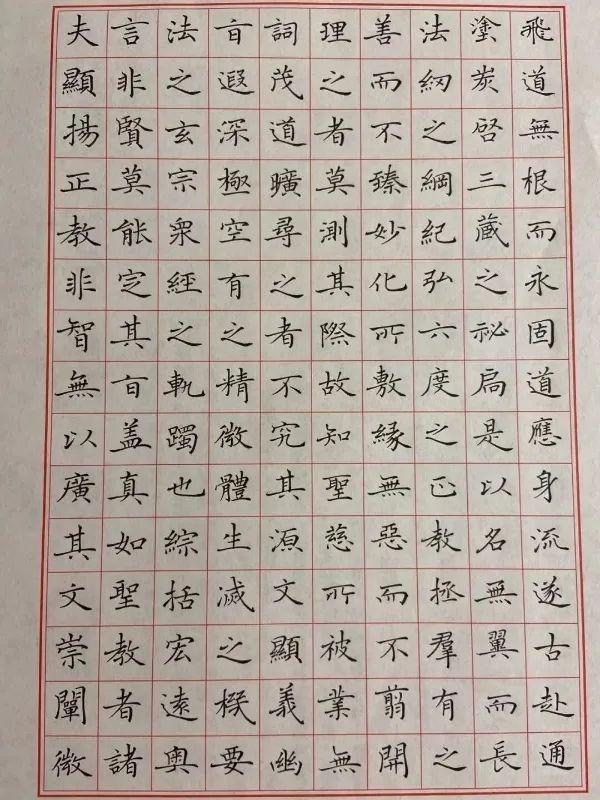 夫顯揚正教非智無以廣其文崇闡微
言非賢莫能定其旨盖真如聖教者諸
法之玄宗衆經之軌躅也綜括宏遠奧
旨遐深極空有之精微體生滅之機要
詞茂道曠尋之者不究其源文顯義幽
理之者莫測其際故知聖慈所被業無
善而不臻妙化所敷緣無惡而不翦開
法網之綱紀弘六度之正教拯羣有之
塗炭啓三藏之祕扃是以名無翼而長
飛道無根而永固道應身流遂古赴通